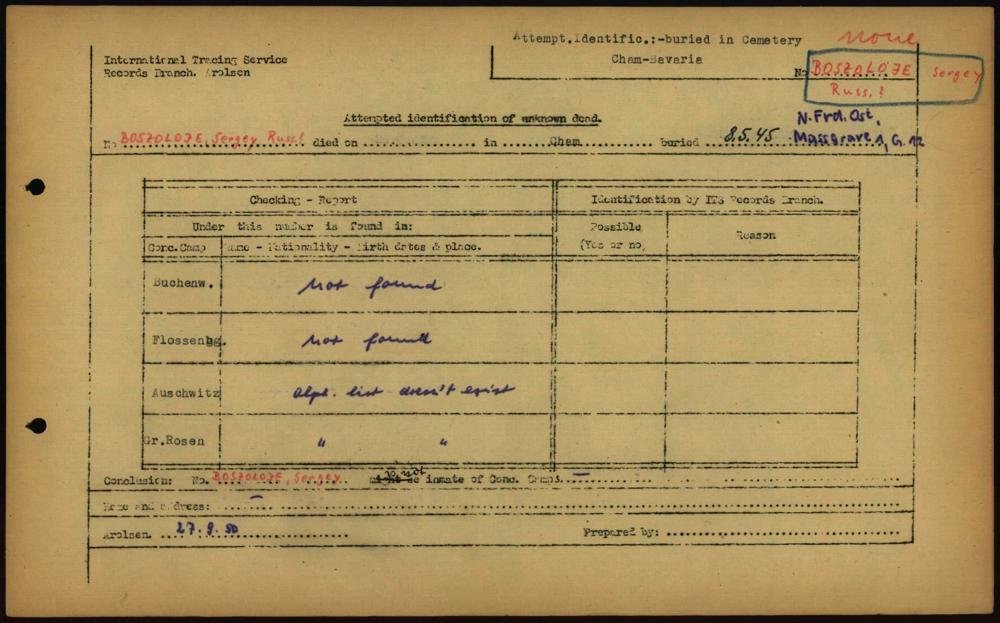 Attempt.Identific.:-buried in Cemetery
Cham-Bavaria
none
No BOSZOLOJE Sergey
Russ.?
International Tracing Service
Records Branch. Arolsen
Attempted identification of unknown dead.
N. Frd. Ost,
Massgrave 1, G. 12
No BOSZOLOJE, Sergey Russ! died on ............... in ....... Cham ............ buried 8.5.45
Checking - Report
Identification by ITS Records Branch.
Under this number is found in:
Possible
(Yes or no)
Reason
Conc.Camp
Name - Nationality - Birth dates & place.
Buchenw.
not found
Flossenbg.
not found
Auschwitz
alph. list doesn't exist
Gr.Rosen
" "
Conclusion: No. BOSZOLOJE, Sergey not be inmate of Conc. Camps. —
Home and address: —
Arolsen. 27.9.50
Prepared by: